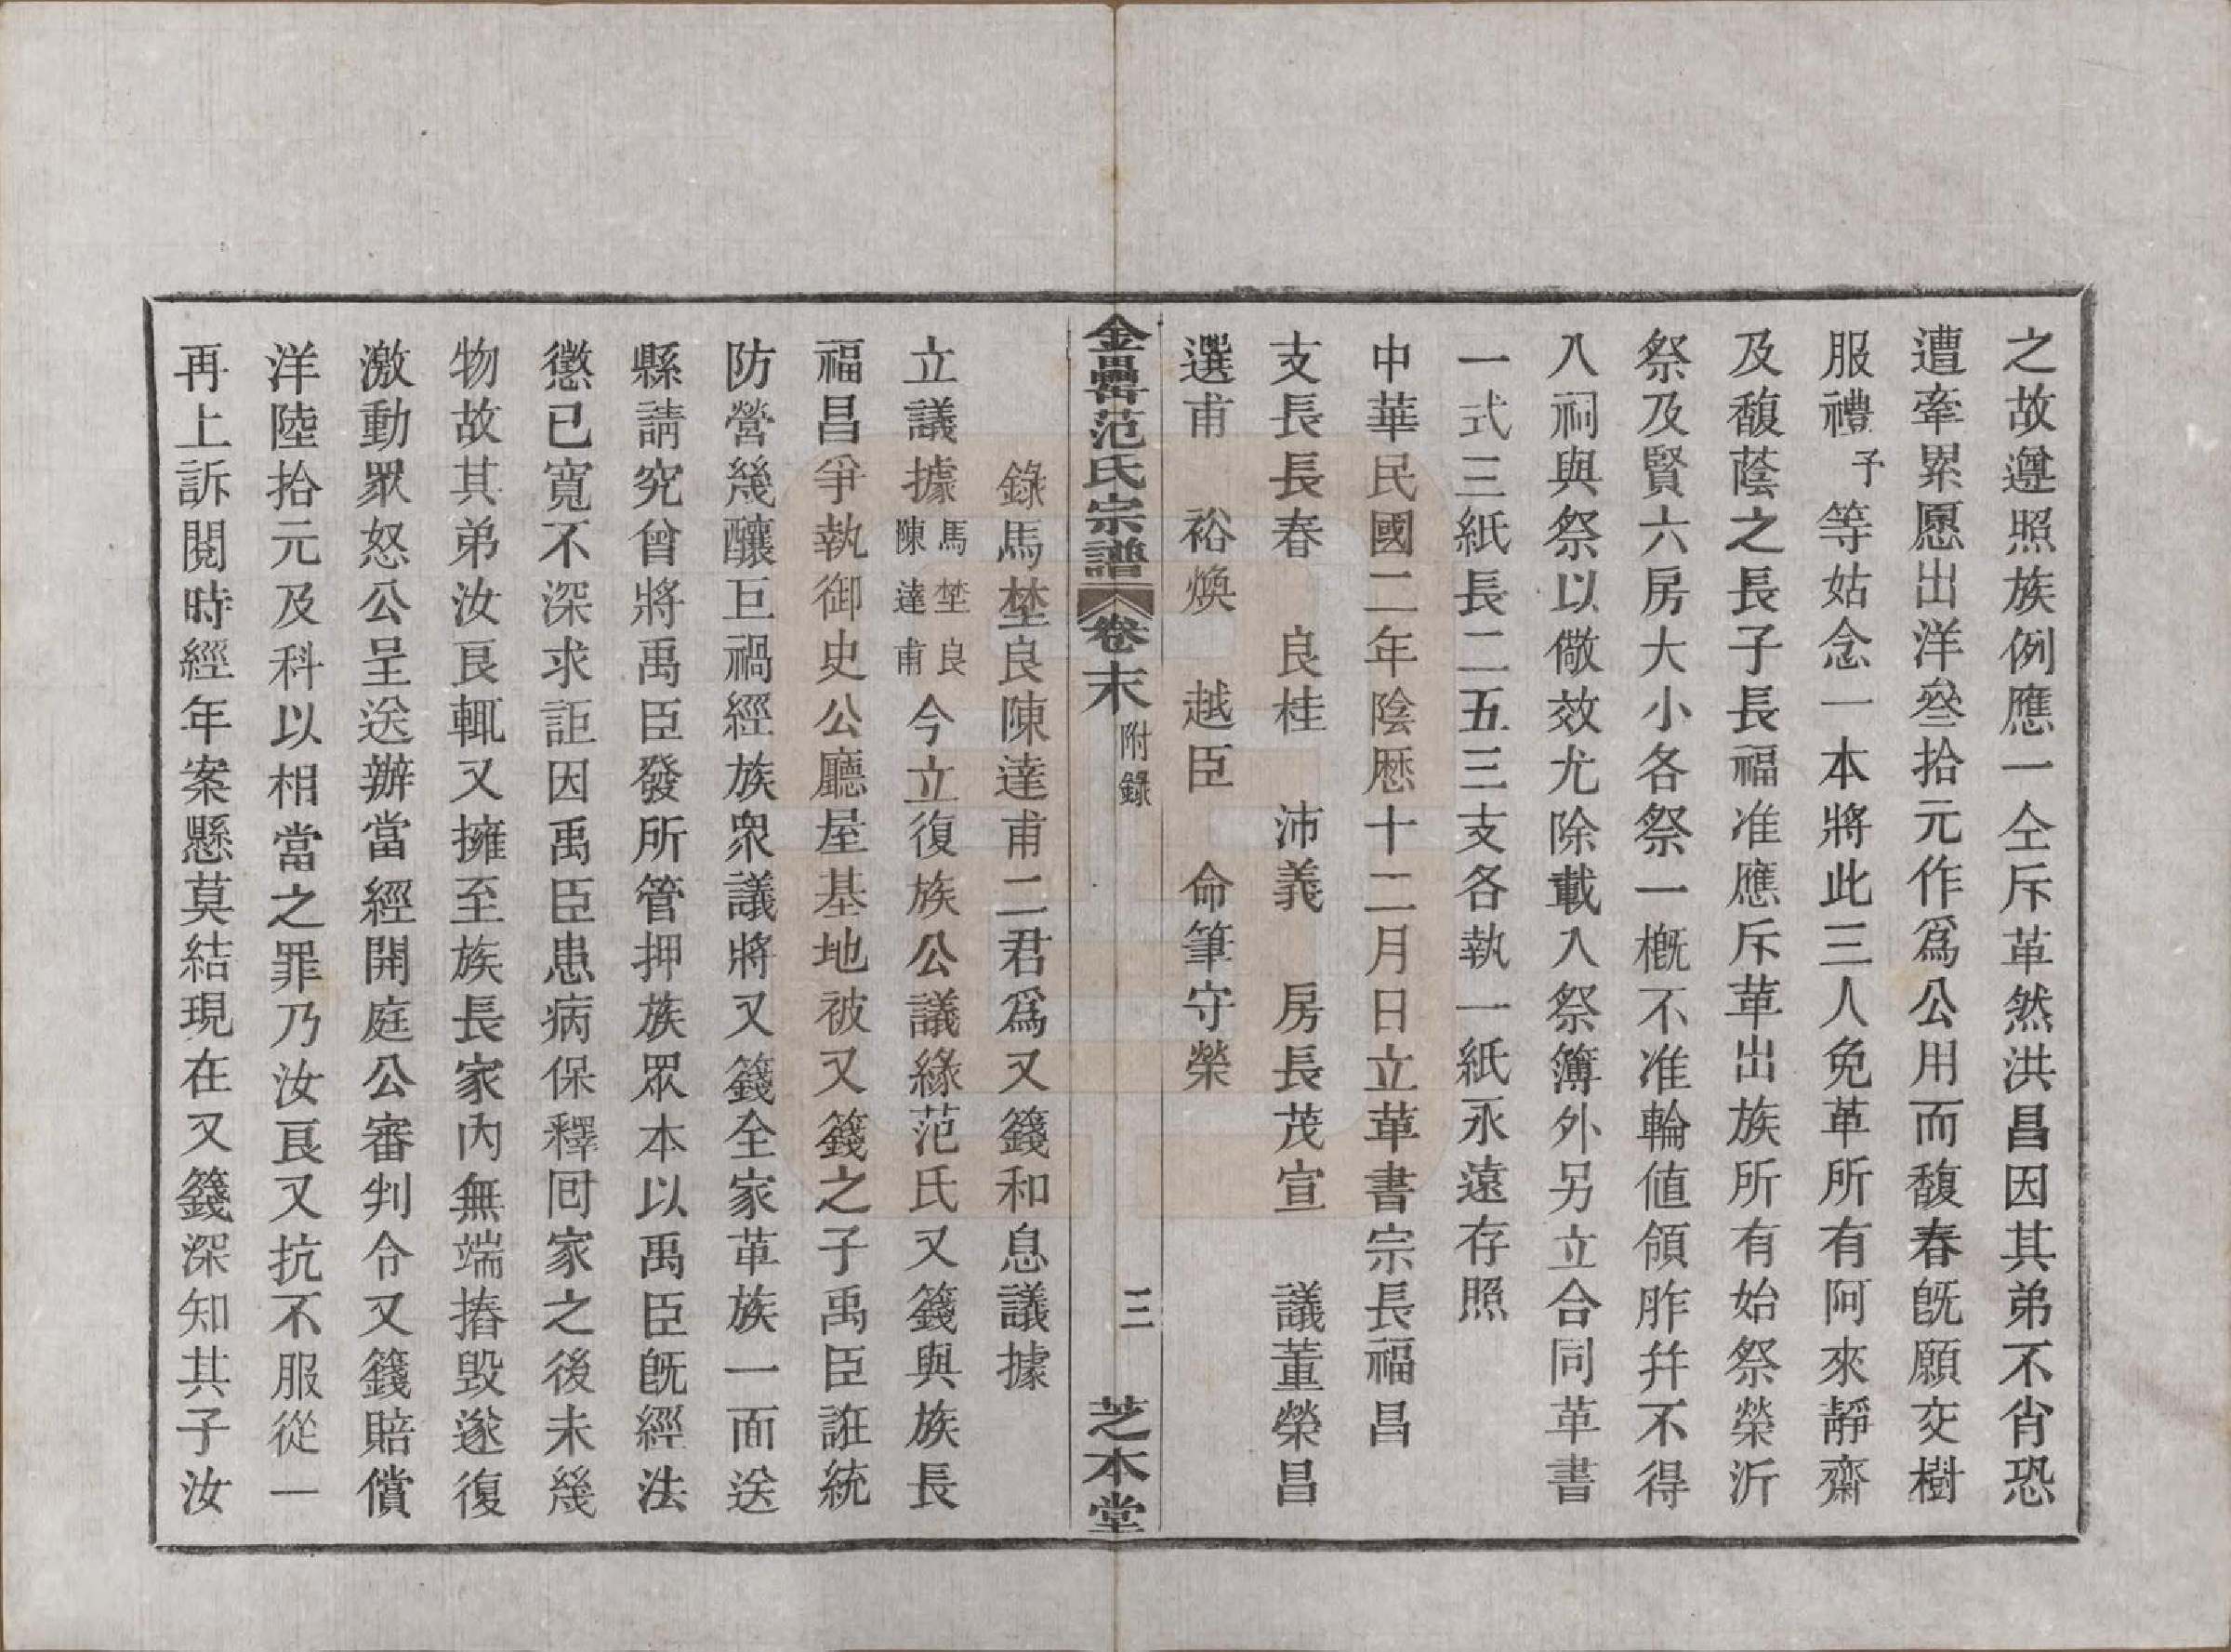 之故遵照族例應一仝斥革然洪昌因其弟不肖恐
遭牽累愿出洋叄拾元作爲公用而馥春旣願交樹
服禮予等姑念一本將此三人免革所有阿來靜齋
及馥蔭之長子長福准應斥革出族所有始祭榮沂
祭及賢六房大小各祭一槪不准輪値領胙幷不得
入祠與祭以儆效尤除載入祭簿外另立合同革書
一式三紙長二五三支各執一紙永遠存照
中華民國二年陰曆十二月日立革書宗長福昌
支長長春 良桂 沛義 房長茂宣 議董榮昌
選甫 裕煥 越臣 命筆守榮
金罍范氏宗譜 卷末 附錄 三 芝本堂
錄馬埜良陳達甫二君爲又籛和息議據
立議據馬埜良陳達甫今立復族公議緣范氏又籛與族長
福昌爭執御史公廳屋基地被又籛之子禹臣誑統
防營幾釀巨禍經族衆議將又籛全家革族一面送
縣請究曾將禹臣發所管押族眾本以禹臣旣經法
懲已寬不深求詎因禹臣患病保釋囘家之後未幾
物故其弟汝良輒又擁至族長家內無端摏毀遂復
激動眾怒公呈送辦當經開庭公審判令又籛賠償
洋陸拾元及科以相當之罪乃汝良又抗不服從一
再上訴閱時經年案懸莫結現在又籛深知其子汝